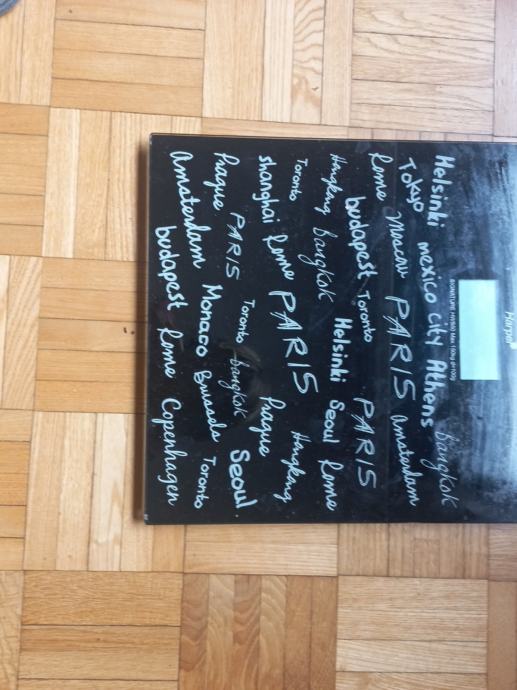 Harpa
SIGNATURE HW960 Max 150kg d=100g
Helsinki mexico city Athens Bangkok
Tokyo
Rome Moscow PARIS Amsterdam
budapest Toronto PARIS
Hongkong Bangkok Helsinki Seoul Rome
Toronto
Shanghai Rome PARIS Hongkong
Prague
Prague PARIS Toronto Bangkok Seoul
Amsterdam Monaco Brussels Toronto
budapest Rome Copenhagen